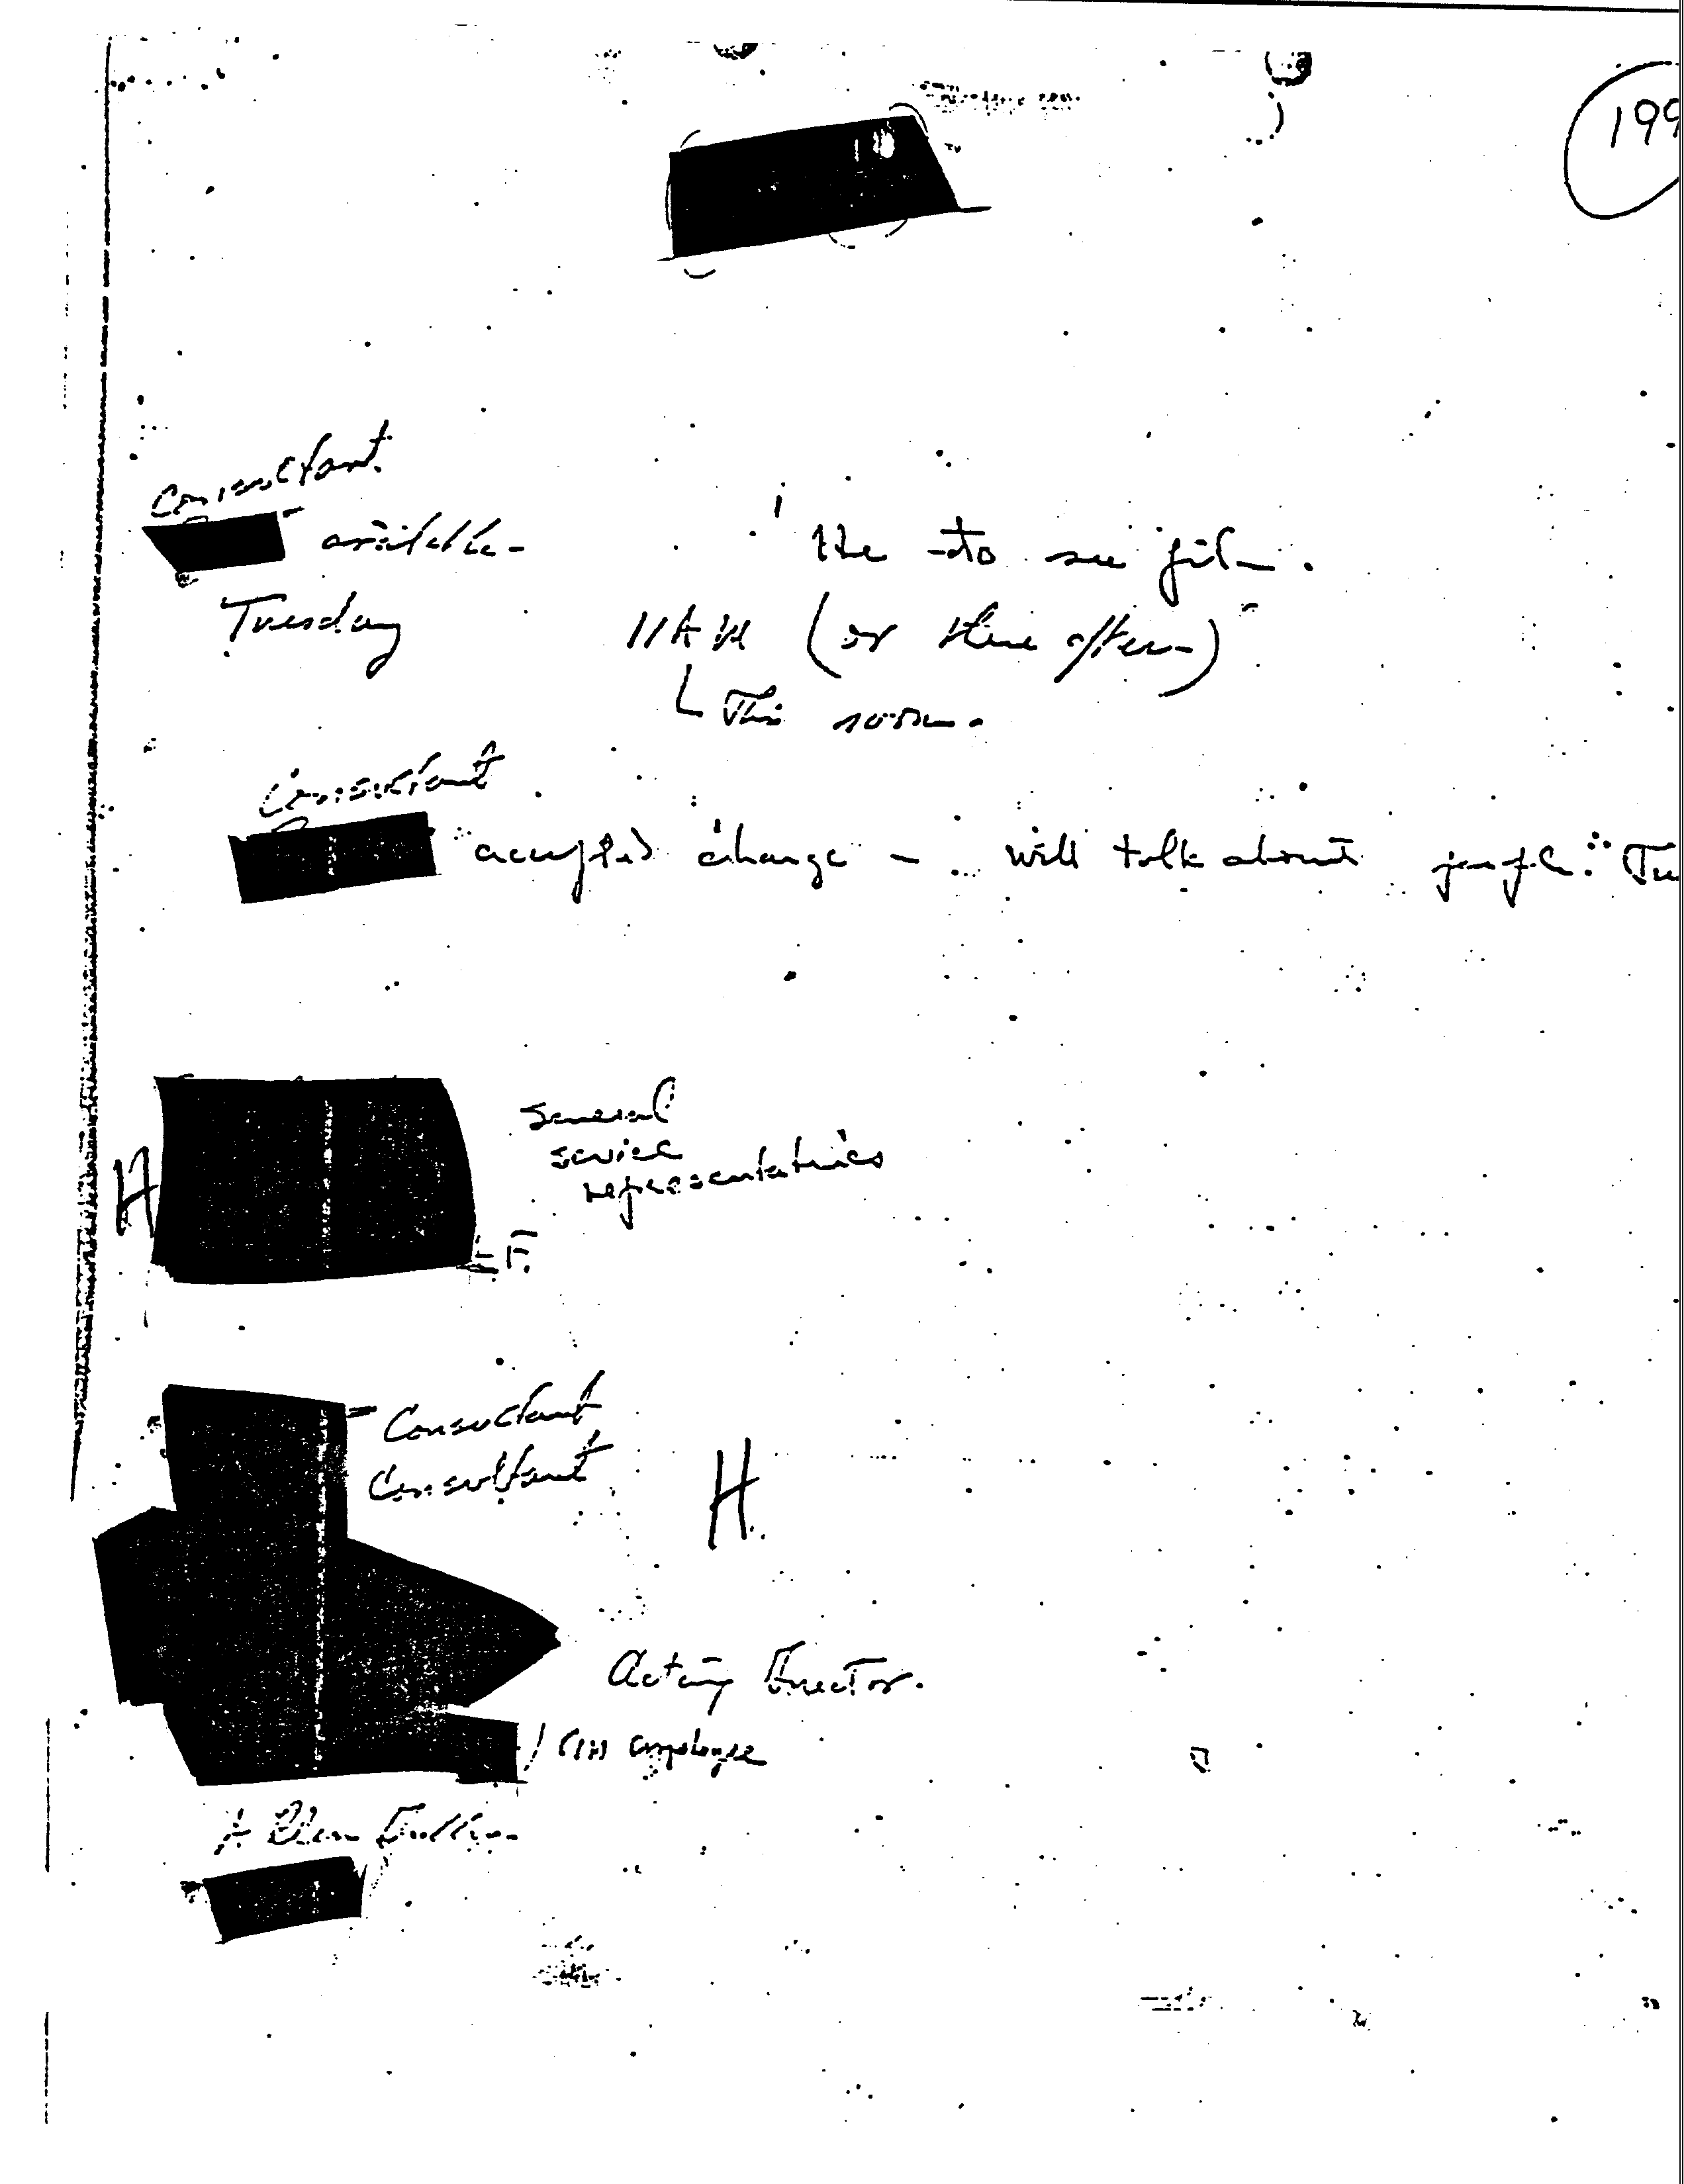 199
Consultant
available -
He - to see film.
Tuesday 11 AM (or there after -)
This room.
Consultant
accepted change - will talk about people. Tu
General
service
representatives
H
F.
Consultant
Consultant
H
Acting Director.
/ CIA employee
Allen Dulles